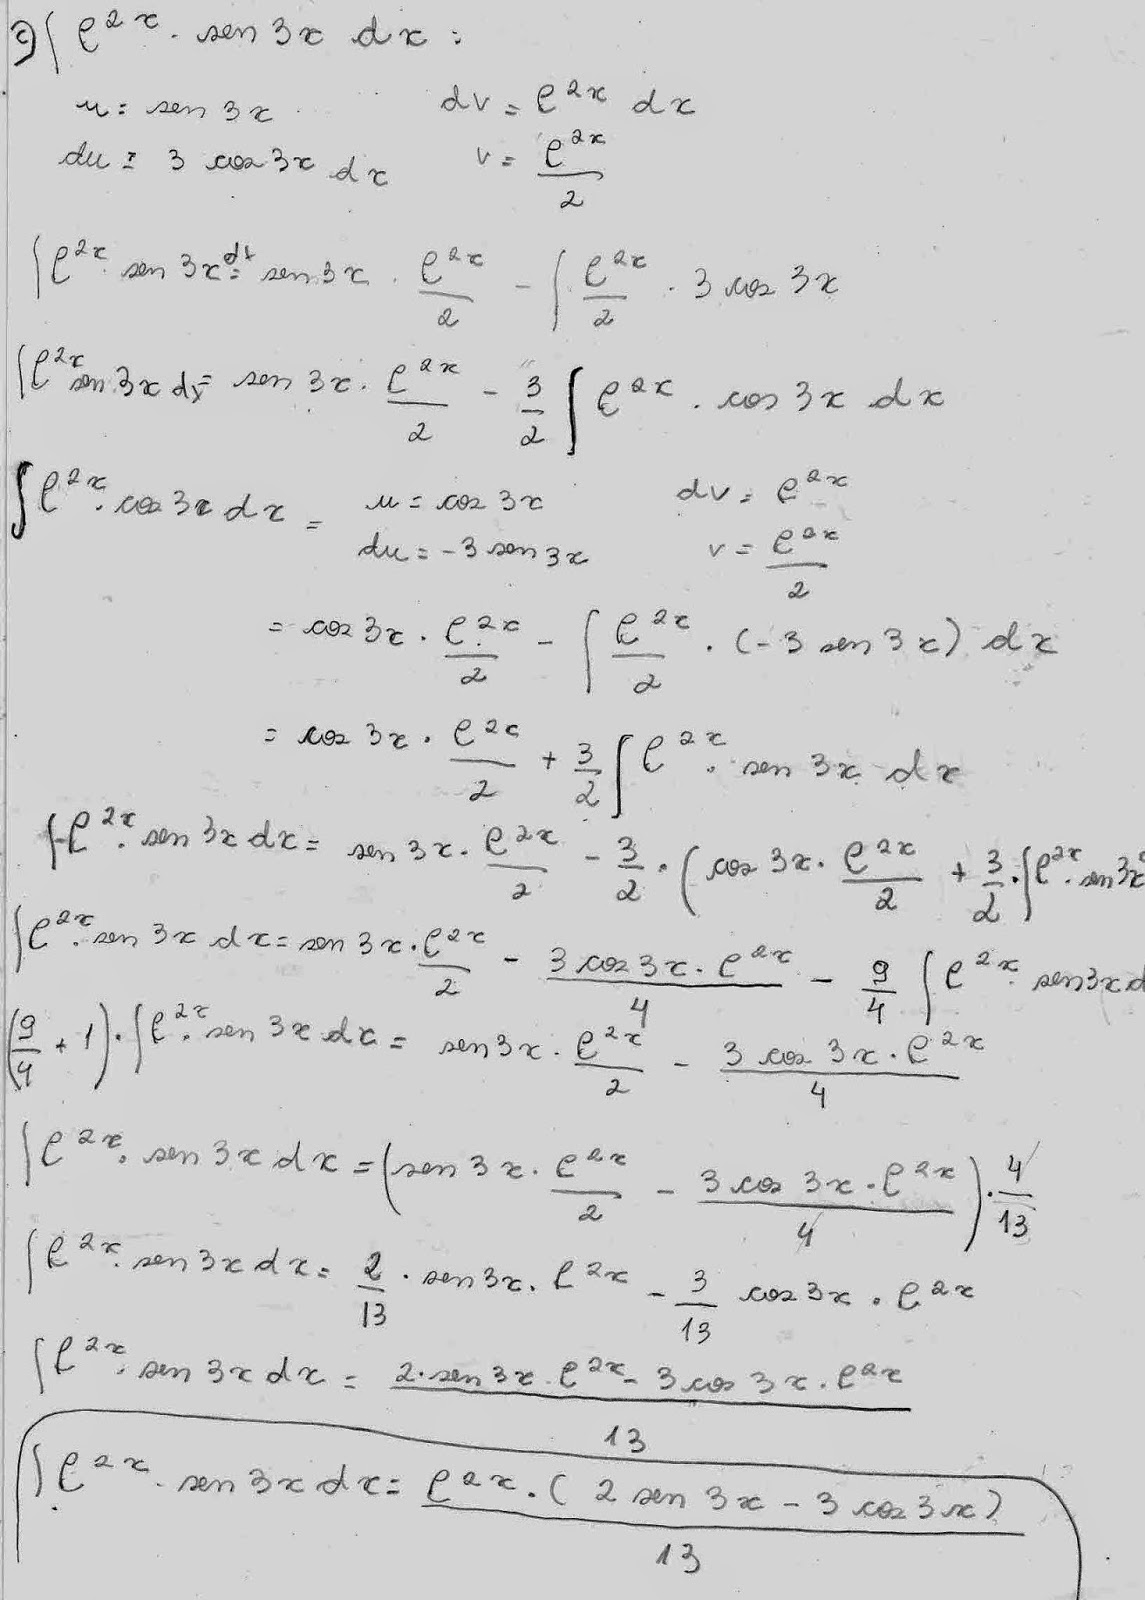 c) ∫ e^2x · sen 3x dx :
u = sen 3x dv = e^2x dx
du = 3 cos 3x dx v = e^2x/2
∫ e^2x · sen 3x dx = sen 3x · e^2x/2 - ∫ e^2x/2 · 3 cos 3x
∫ e^2x sen 3x dx = sen 3x · e^2x/2 - 3/2 ∫ e^2x · cos 3x dx
∫ e^2x · cos 3x dx = u = cos 3x dv = e^2x
du = -3 sen 3x v = e^2x/2
= cos 3x · e^2x/2 - ∫ e^2x/2 · (-3 sen 3x) dx
= cos 3x · e^2x/2 + 3/2 ∫ e^2x · sen 3x dx
∫ e^2x · sen 3x dx = sen 3x · e^2x/2 - 3/2 · (cos 3x · e^2x/2 + 3/2 · ∫ e^2x · sen 3x
∫ e^2x · sen 3x dx = sen 3x · e^2x/2 - 3 cos 3x · e^2x/4 - 9/4 ∫ e^2x · sen 3x d
(9/4 + 1) · ∫ e^2x · sen 3x dx = sen 3x · e^2x/2 - 3 cos 3x · e^2x/4
∫ e^2x · sen 3x dx = (sen 3x · e^2x/2 - 3 cos 3x · e^2x/4) · 4/13
∫ e^2x · sen 3x dx = 2/13 · sen 3x · e^2x - 3/13 cos 3x · e^2x
∫ e^2x · sen 3x dx = 2 · sen 3x · e^2x - 3 cos 3x · e^2x/13
∫ e^2x · sen 3x dx = e^2x · (2 sen 3x - 3 cos 3x)/13